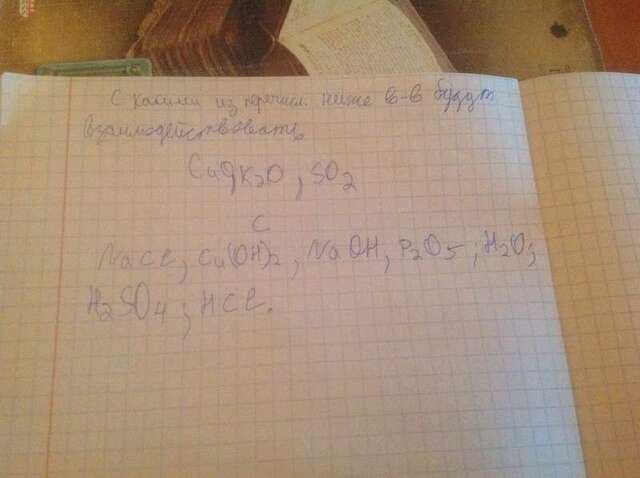 С какими из перечисл. ниже в-в будут
взаимодействовать
CuO, K2O, SO2
С
NaCl, Cu(OH)2, NaOH, P2O5; H2O;
H2SO4; HCl.